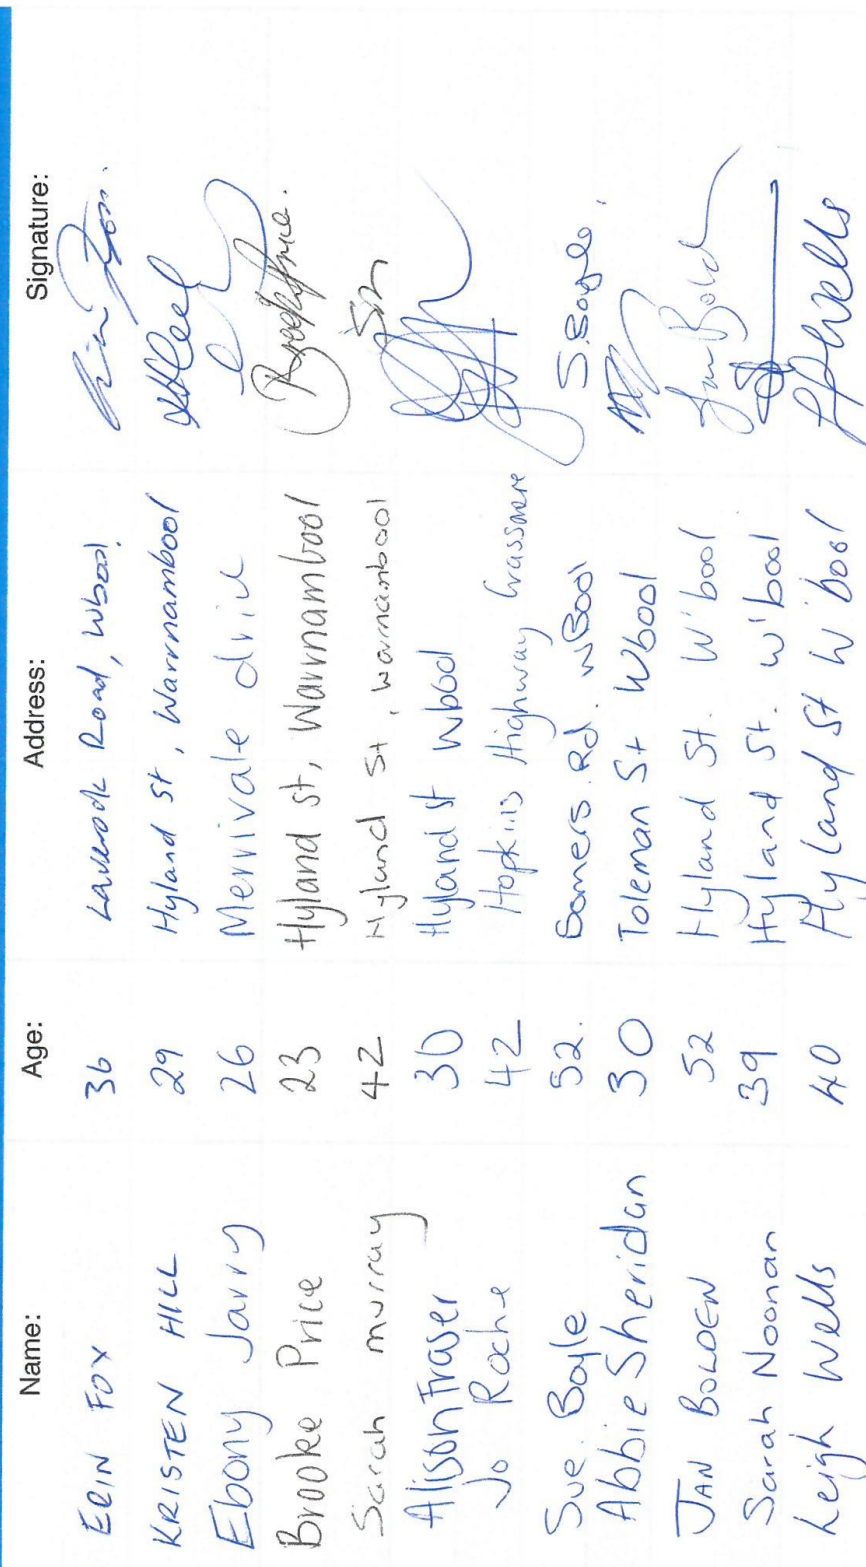 Name: Age: Address: Signature:
ERIN FOX 36 Laverock Road, Wbool.
KRISTEN HILL 29 Hyland St, Warrnambool
Ebony Jarry 26 Merrivale drive
Brooke Price 23 Hyland st, Warrnambool
Sarah murray 42 Hyland St, warrnambool Sm
Alison Fraser 30 Hyland st Wbool
Jo Roche 42 Hopkins Highway Grassmere
Sue. Boyle 52. Bomers. Rd. WBool S.Boyle.
Abbie Sheridan 30 Toleman St Wbool
JAN BOLDEN 52 Hyland St. W'bool Jan Bold
Sarah Noonan 39 Hyland St. W'bool
Leigh Wells 40 Hyland St W'bool LPWells